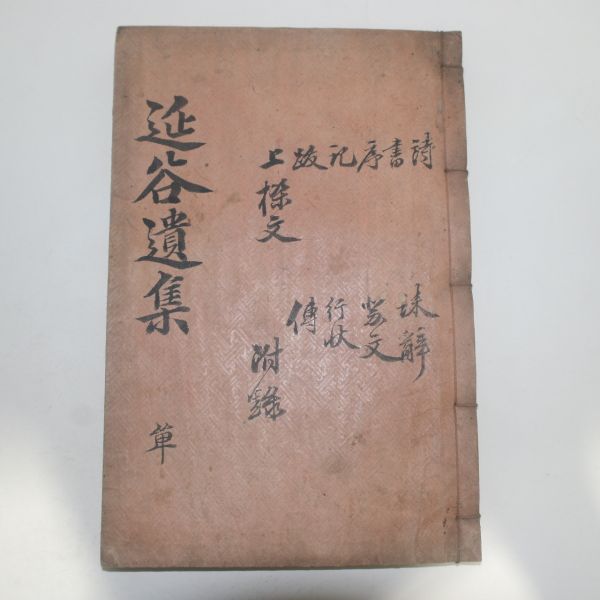 延谷遺集
單
詩
書
序
記
跋
上樑文
誄辭
祭文
行狀
傳
附錄